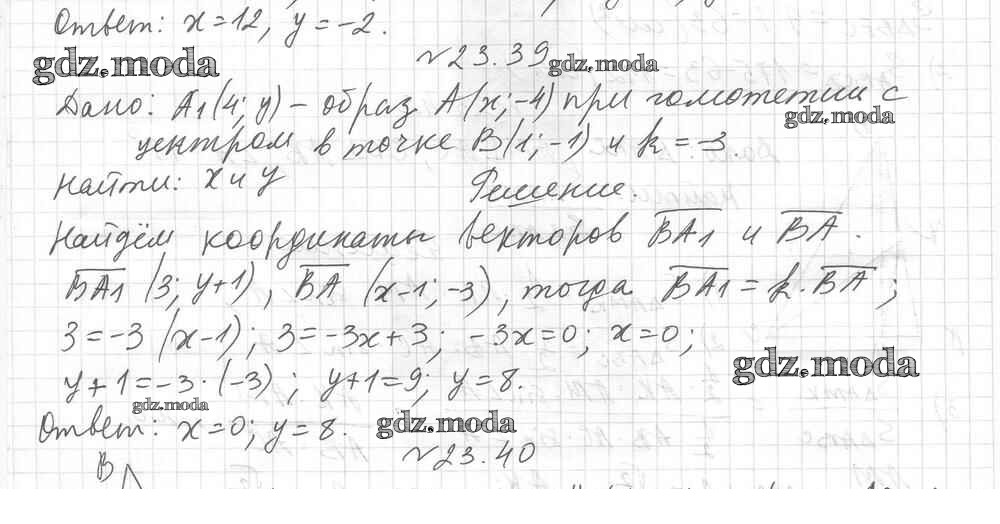 Ответ: x=12, y=-2.
№23.39 gdz.moda
gdz.moda
Дано: A1(4; y) - образ A(x; -4) при гомотетии с
gdz.moda
центром в точке B(1; -1) и k=-3.
Найти: x и y Решение.
Найдём координаты векторов BA1 и BA.
BA1 (3; y+1), BA (x-1; -3), тогда BA1 = k·BA;
3=-3(x-1); 3=-3x+3; -3x=0; x=0;
y+1=-3·(-3); y+1=9; y=8. gdz.moda
gdz.moda
Ответ: x=0; y=8. gdz.moda
№23.40
B